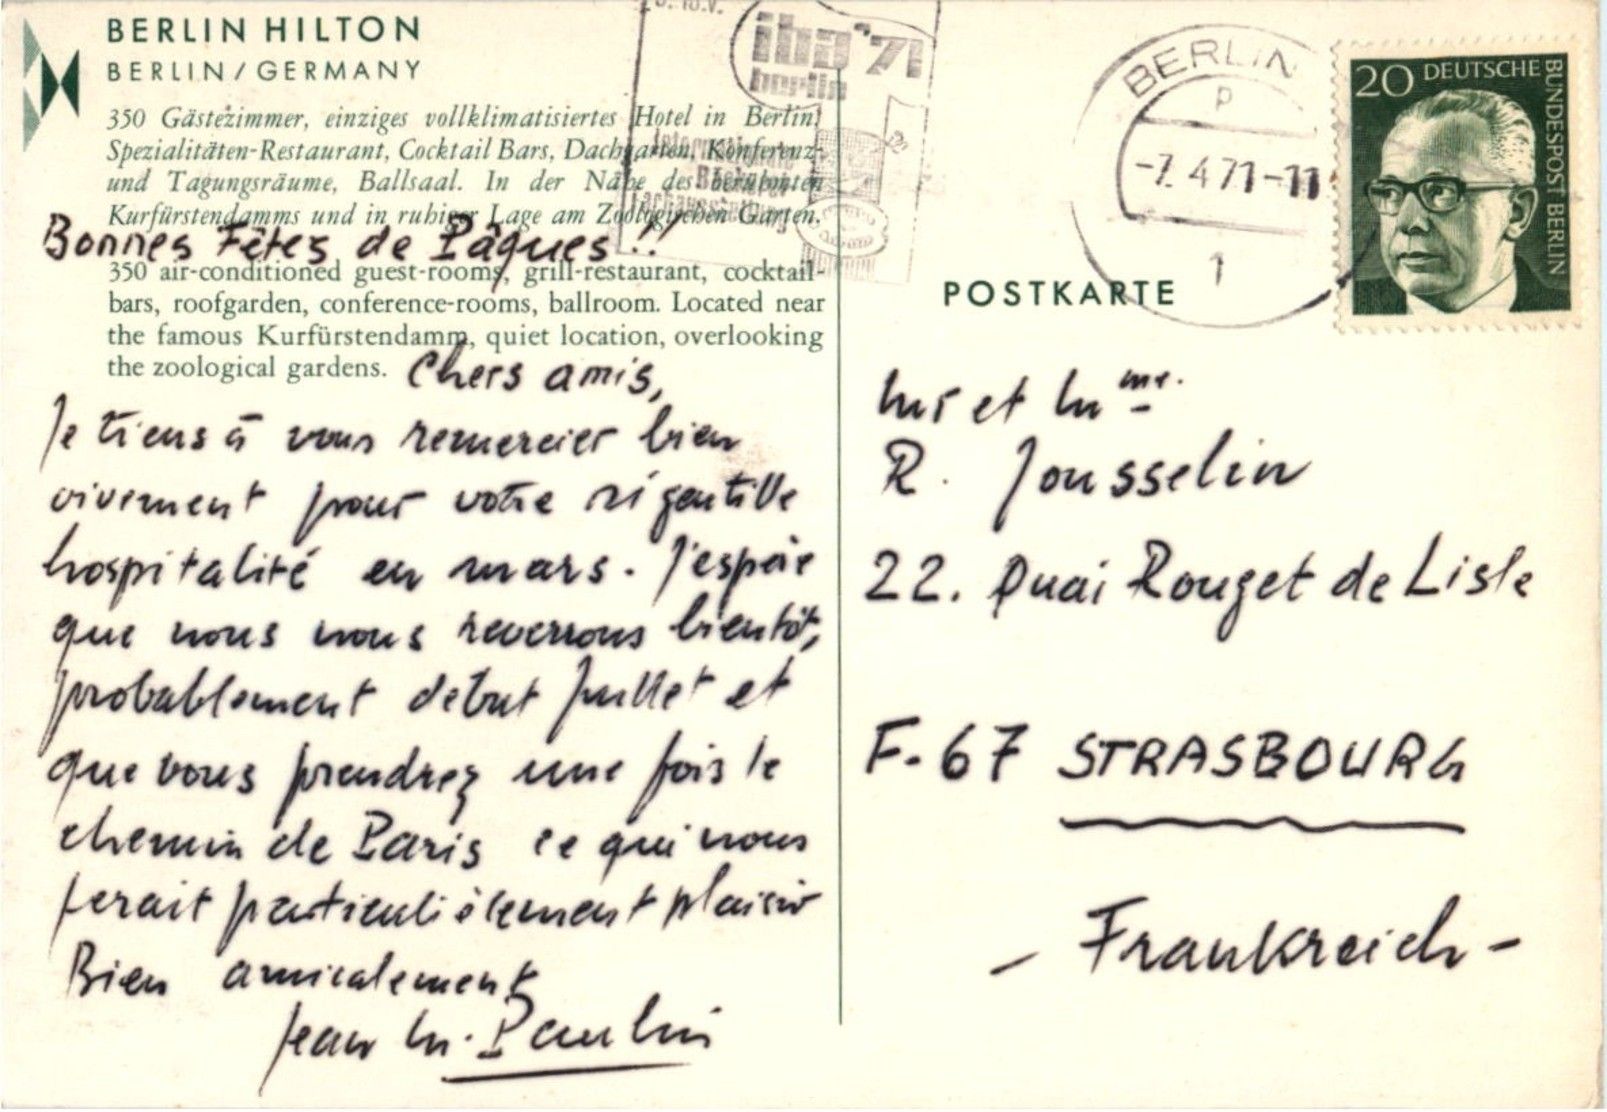 BERLIN HILTON
BERLIN/GERMANY
350 Gästezimmer, einziges vollklimatisiertes Hotel in Berlin,
Spezialitäten-Restaurant, Cocktail Bars, Dachgarten, Konferenz-
und Tagungsräume, Ballsaal. In der Nähe des berühmten
Kurfürstendamms und in ruhiger Lage am Zoologischen Garten.
Bonnes Fêtes de Pâques!!
350 air-conditioned guest-rooms, grill-restaurant, cocktail-
bars, roofgarden, conference-rooms, ballroom. Located near
the famous Kurfürstendamm, quiet location, overlooking
the zoological gardens.
Chers amis,
Je tiens à vous remercier bien
vivement pour votre si gentille
hospitalité en mars. J'espère
que nous nous reverrons bientôt,
probablement debut Juillet et
que vous prendrez une fois le
chemin de Paris ce qui nous
ferait particulièrement plaisir
Bien amicalement
Jean M. Paulin
iba'71
berlin
BERLIN
P
-7.4.71-11
1
20 DEUTSCHE
BUNDESPOST BERLIN
POSTKARTE
Mr et Mme.
R. Jousselin
22. Quai Rouget de Lisle
F-67 STRASBOURG
- Frankreich -